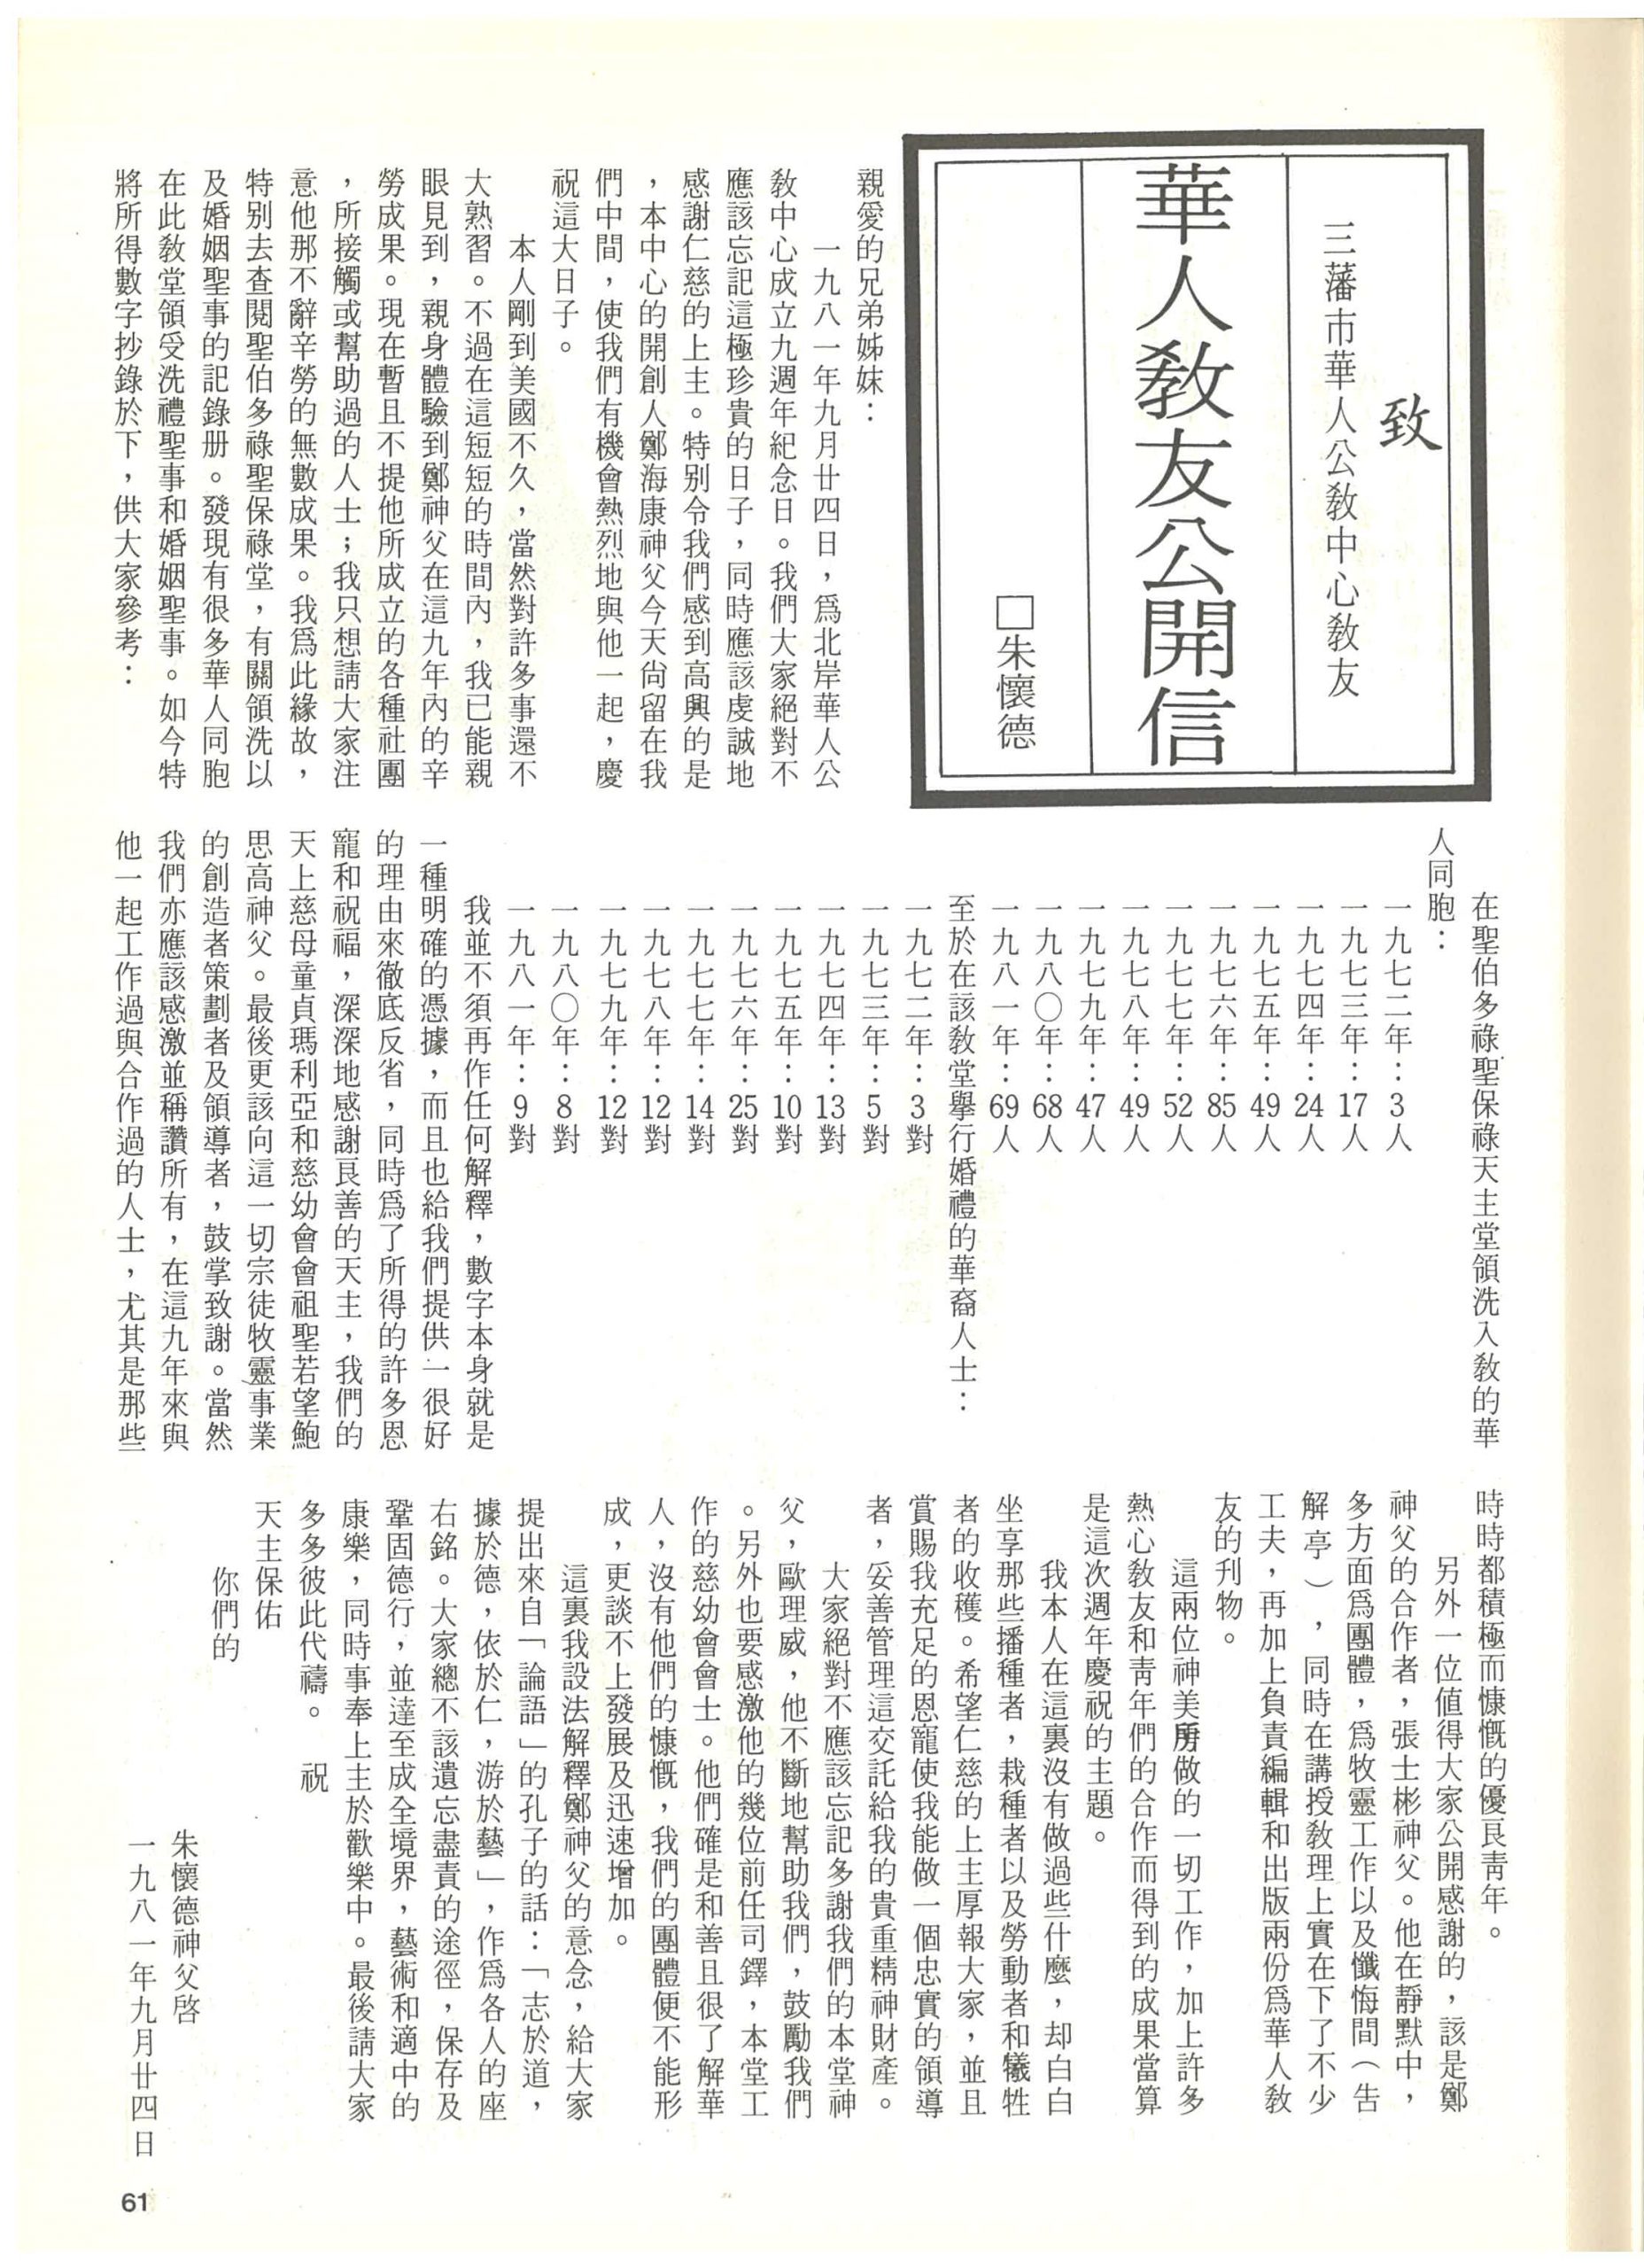 致
三藩市華人公教中心教友
華人教友公開信
□朱懷德
親愛的兄弟姊妹：
一九八一年九月廿四日，爲北岸華人公
教中心成立九週年紀念日。我們大家絕對不
應該忘記這極珍貴的日子，同時應該虔誠地
感謝仁慈的上主。特別令我們感到高興的是
，本中心的開創人鄭海康神父今天尙留在我
們中間，使我們有機會熱烈地與他一起，慶
祝這大日子。
本人剛到美國不久，當然對許多事還不
大熟習。不過在這短短的時間內，我已能親
眼見到，親身體驗到鄭神父在這九年內的辛
勞成果。現在暫且不提他所成立的各種社團
，所接觸或幫助過的人士；我只想請大家注
意他那不辭辛勞的無數成果。我爲此緣故，
特別去查閱聖伯多祿聖保祿堂，有關領洗以
及婚姻聖事的記錄册。發現有很多華人同胞
在此教堂領受洗禮聖事和婚姻聖事。如今特
將所得數字抄錄於下，供大家參考：
在聖伯多祿聖保祿天主堂領洗入教的華
人同胞：
一九七二年：3人
一九七三年：17人
一九七四年：24人
一九七五年：49人
一九七六年：85人
一九七七年：52人
一九七八年：49人
一九七九年：47人
一九八〇年：68人
一九八一年：69人
至於在該教堂擧行婚禮的華裔人士：
一九七二年：3對
一九七三年：5對
一九七四年：13對
一九七五年：10對
一九七六年：25對
一九七七年：14對
一九七八年：12對
一九七九年：12對
一九八〇年：8對
一九八一年：9對
我並不須再作任何解釋，數字本身就是
一種明確的憑據，而且也給我們提供一很好
的理由來徹底反省，同時爲了所得的許多恩
寵和祝福，深深地感謝良善的天主，我們的
天上慈母童貞瑪利亞和慈幼會會祖聖若望鮑
思高神父。最後更該向這一切宗徒牧靈事業
的創造者策劃者及領導者，鼓掌致謝。當然
我們亦應該感激並稱讚所有，在這九年來與
他一起工作過與合作過的人士，尤其是那些
時時都積極而慷慨的優良靑年。
另外一位值得大家公開感謝的，該是鄭
神父的合作者，張士彬神父。他在靜默中，
多方面爲團體，爲牧靈工作以及懺悔間（告
解亭），同時在講授教理上實在下了不少
工夫，再加上負責編輯和出版兩份爲華人教
友的刋物。
這兩位神美所做的一切工作，加上許多
熱心教友和靑年們的合作而得到的成果當算
是這次週年慶祝的主題。
我本人在這裏沒有做過些什麼，却白白
坐享那些播種者，栽種者以及勞動者和犧牲
者的收穫。希望仁慈的上主厚報大家，並且
賞賜我充足的恩寵使我能做一個忠實的領導
者，妥善管理這交託給我的貴重精神財產。
大家絕對不應該忘記多謝我們的本堂神
父，歐理威，他不斷地幫助我們，鼓勵我們
。另外也要感激他的幾位前任司鐸，本堂工
作的慈幼會會士。他們確是和善且很了解華
人，沒有他們的慷慨，我們的團體便不能形
成，更談不上發展及迅速增加。
這裏我設法解釋鄭神父的意念，給大家
提出來自「論語」的孔子的話：「志於道，
據於德，依於仁，游於藝」，作爲各人的座
右銘。大家總不該遺忘盡責的途徑，保存及
鞏固德行，並達至成全境界，藝術和適中的
康樂，同時事奉上主於歡樂中。最後請大家
多多彼此代禱。　祝
天主保佑
你們的
朱懷德神父啓
一九八一年九月廿四日
61